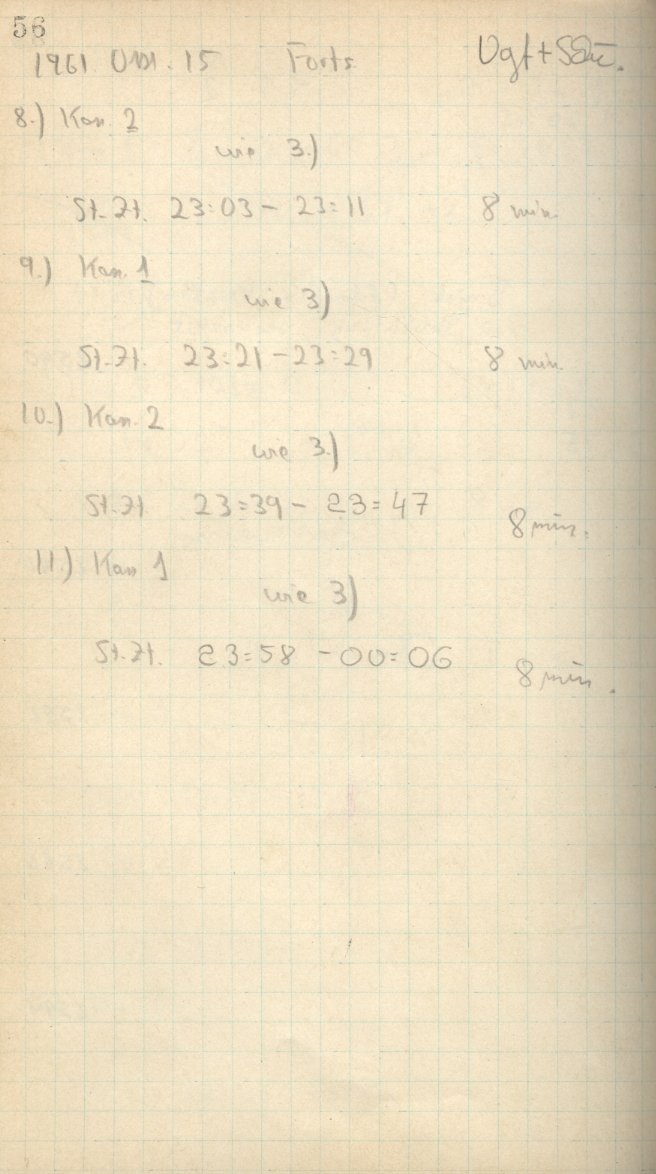 56
1961 VIII. 15 Forts
8.) Kam. 2
wie 3.)
St. Zt. 23:03 – 23:11 8 min.
9.) Kam. 1
wie 3)
St. Zt. 23:21 – 23:29 8 min.
10.) Kam. 2
wie 3.)
St. Zt 23:39 – 23:47 8 min.
11.) Kam 1
wie 3)
St. Zt. 23:58 – 00:06 8 min.